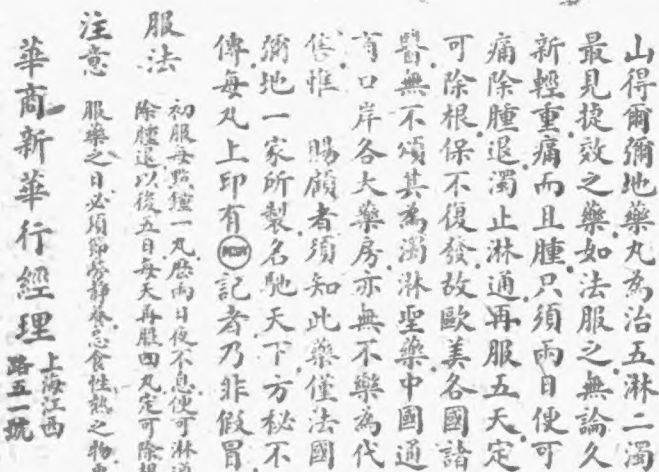 山得爾彌地藥丸為治五淋二濁
最見捷效之藥如法服之無論久
新輕重痛而且腫只須兩日便可
痛除腫退濁止淋通再服五天定
可除根保不復發故歐美各國諸
醫無不頌其為濁淋聖藥中國通
商口岸各大藥房亦無不樂為代
售惟 賜顧者須知此藥僅法國
彌地一家所製名馳天下方秘不
傳每丸上印有記者乃非假冒
服法
初服每點鐘一丸歷兩日夜不息便可淋通
除腫退以後五日每天再服四丸定可除根
注意
服藥之日必須節勞靜養忌食性熱之物
華商新華行經理
上海江西
路五一號